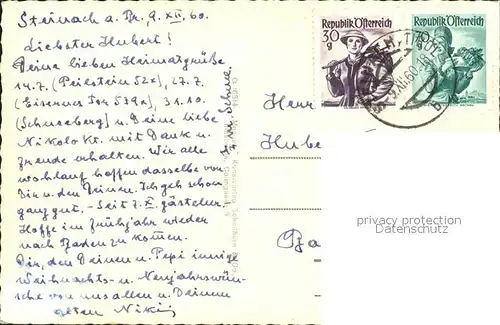 Steinach a. Br. 9. XII. 60.
Liebster Hubert!
Deine lieben Heimatgrüße
14.7. (Peilstein 52x), 27.7.
(Eisernes Tor 539x), 31.10.
(Schneeberg) u. Deine liebe
Nikolo Kt. mit Dank u.
Freude erhalten. Wir alle
wohlauf hoffen dasselbe von
Dir u. den Deinen. Ich geh schon
ganz gut. – Seit 7. X. gästeleer.
Hoffe im Frühjahr wieder
nach Baden zu kommen.
Dir, den Deinen u. Pepi innige
Weihnachts- u. Neujahrswün-
sche von uns allen u. Deinem
alten Niki
Schnee.
Republik Österreich
30
g
Republik Österreich
70
g
Herr
Hube
Ba
privacy protection
Datenschutz